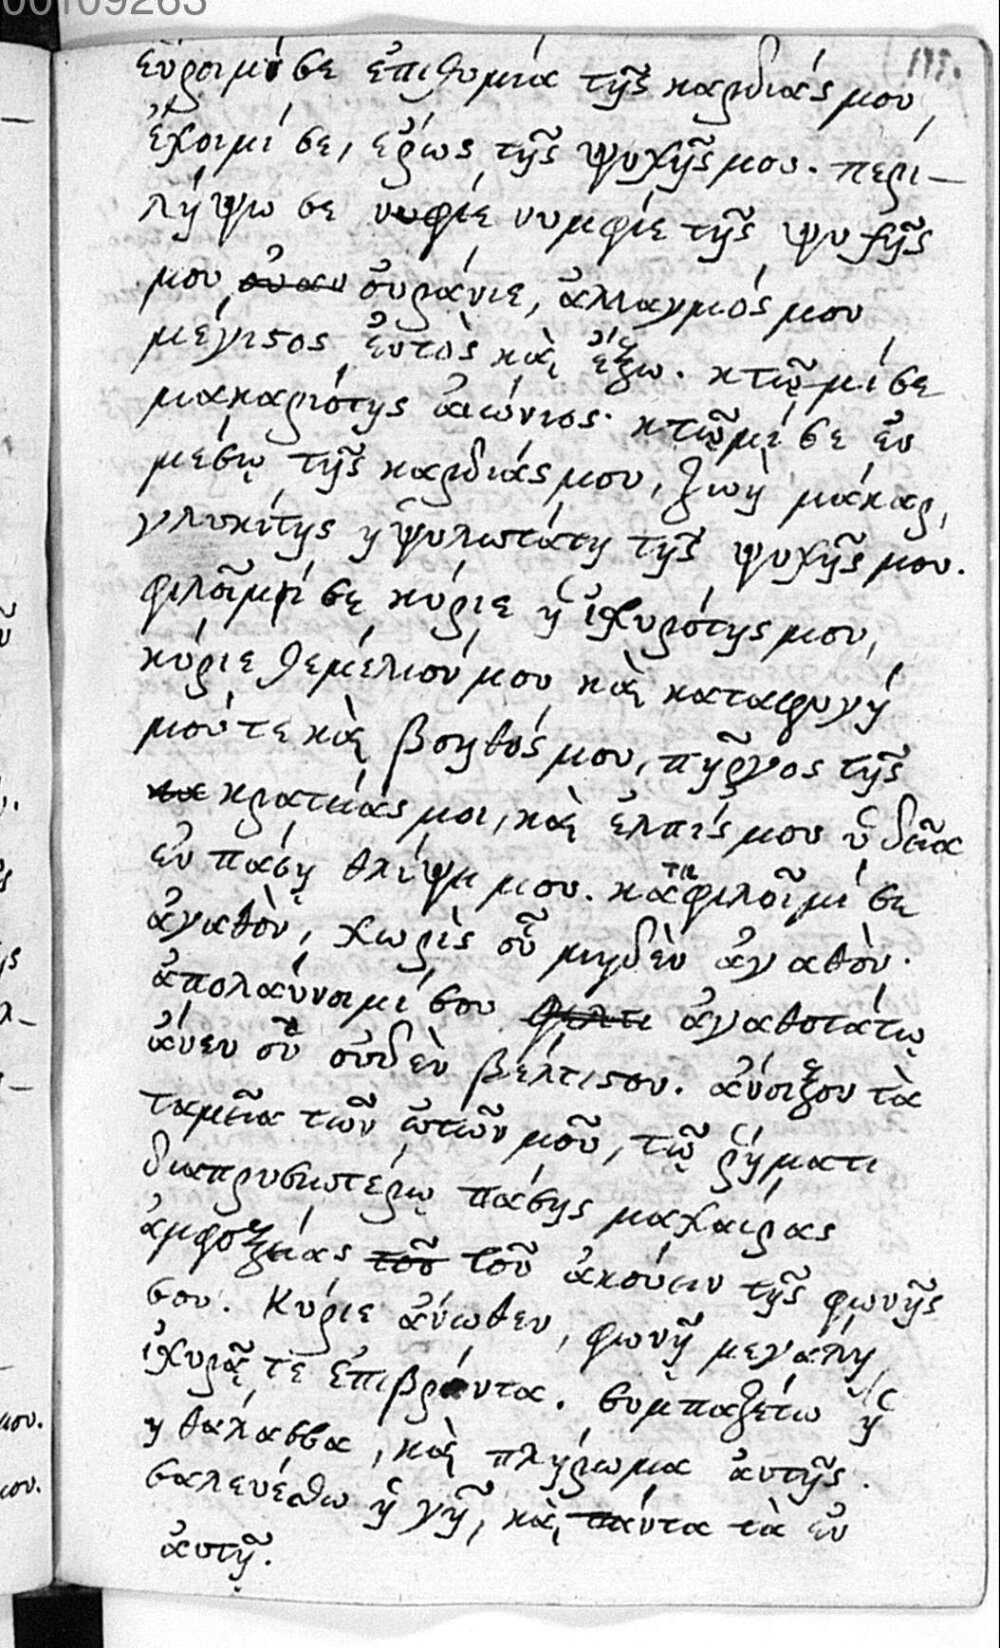 00109263
εὕροιμί σε ἐπιθυμία τῆς καρδιάς μου,
ἔχοιμί σε, ἔρως τῆς ψυχῆς μου. περι-
λήψω σε νυφίε νυμφίε τῆς ψυχῆς
μου οὐραν οὐράνιε, ἀλλαγμός μου
μέγιστος ἐντὸς καὶ ἔξω. κτῷμί σε
μακαριότης αἰώνιος· κτῷμί σε ἐν
μέσῳ τῆς καρδιάς μου, ζωὴ μάκαρ,
γλυκύτης ἡ ψυλωτάτη τῆς ψυχῆς μου.
φιλοῖμί σε, κύριε ἡ ἰχυρότης μου,
κύριε θεμέλιόν μου, καὶ καταφυγή
μού τε καὶ βοηθός μου, πῆργος τῆς
κα κρατιάς μοι, καὶ ἐλπίς μου ὑδεῖα
ἐν πάσῃ θλίψει μου. καὶ φιλοῖμί σε
ἀγαθὸν, χωρὶς οὗ μηδὲν ἀγαθὸν.
ἀπολαύνοιμί σου ἀγαθοτάτῳ
ἄνευ οὗ οὐδὲν βέλτιστον. ἄνοιξον τὰ
ταμεῖα τῶν ὠτίων μοῦ, τῷ ῥήματι
διαπρυσιωτέρῳ πάσης μαχαίρας
ἀμφοξείας τοῦ τοῦ ἀκούειν τῆς φωνῆς
σου. Κύριε ἄνωθεν, φωνῇ μεγάλῃ,
ἰχυρᾷ τὲ ἐπιβρόντα. συμπαζέτω ἡ
η θάλασσα, καὶ πλήρωμα ἀυτῆς.
σαλευέσθω ἡ γῆ, καὶ πάντα τὰ ἐν
ἀυτῇ.
μου.
μου.